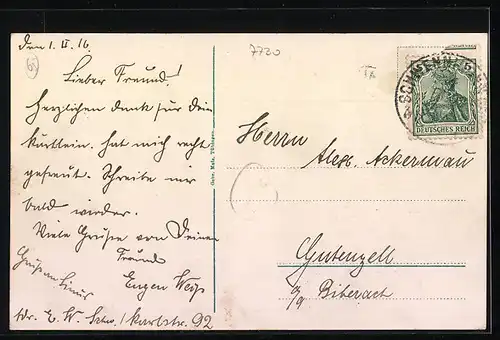 den 1. II. 16.
7720
Lieber Freund!
Herzlichen dank für dein
kartlein. hat mich recht
gefreut. Schreibe mir
bald wieder.
Viele Grüße von Deinem
Freund
Eugen Weiß
Adr. E. W. Schw. / Karlstr. 92
Gebr. Metz, Tübingen.
SCHWENNINGEN
DEUTSCHES REICH
Herrn
Alex. Ackermann
Gutenzell
Biberach